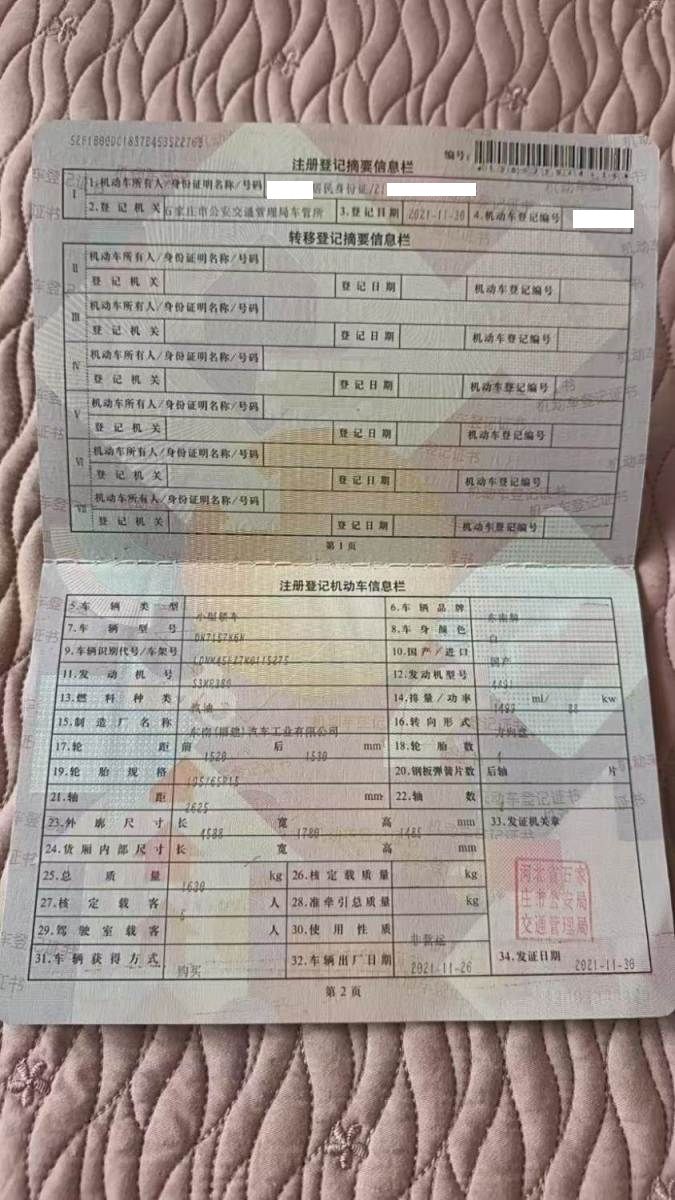 编号:
注册登记摘要信息栏
I 1.机动车所有人/身份证明名称/号码 居民身份证/21
2.登记机关 石家庄市公安交通管理局车管所 3.登记日期 2021-11-30 4.机动车登记编号
转移登记摘要信息栏
II 机动车所有人/身份证明名称/号码
登记机关 登记日期 机动车登记编号
III 机动车所有人/身份证明名称/号码
登记机关 登记日期 机动车登记编号
IV 机动车所有人/身份证明名称/号码
登记机关 登记日期 机动车登记编号
V 机动车所有人/身份证明名称/号码
登记机关 登记日期 机动车登记编号
VI 机动车所有人/身份证明名称/号码
登记机关 登记日期 机动车登记编号
VII 机动车所有人/身份证明名称/号码
登记机关 登记日期 机动车登记编号
第1页
注册登记机动车信息栏
5.车辆类型 小型轿车 6.车辆品牌
7.车辆型号 8.车身颜色 白
9.车辆识别代号/车架号 10.国产/进口 国产
11.发动机号 12.发动机型号
13.燃料种类 汽油 14.排量/功率 ml/ kw
15.制造厂名称 东南(福建)汽车工业有限公司 16.转向形式 方向盘
17.轮距 前 1520 后 1530 mm 18.轮胎数 4
19.轮胎规格 195/65R15 20.钢板弹簧片数 后轴 片
21.轴距 2625 mm 22.轴数
23.外廓尺寸 长 4588 宽 1780 高 1485 mm 33.发证机关章
24.货厢内部尺寸 长 宽 高 mm
25.总质量 1630 kg 26.核定载质量 kg
27.核定载客 5 人 28.准牵引总质量 kg
河北省石家
庄市公安局
交通管理局
29.驾驶室载客 人 30.使用性质 非营运
31.车辆获得方式 购买 32.车辆出厂日期 2021-11-26 34.发证日期 2021-11-30
第2页